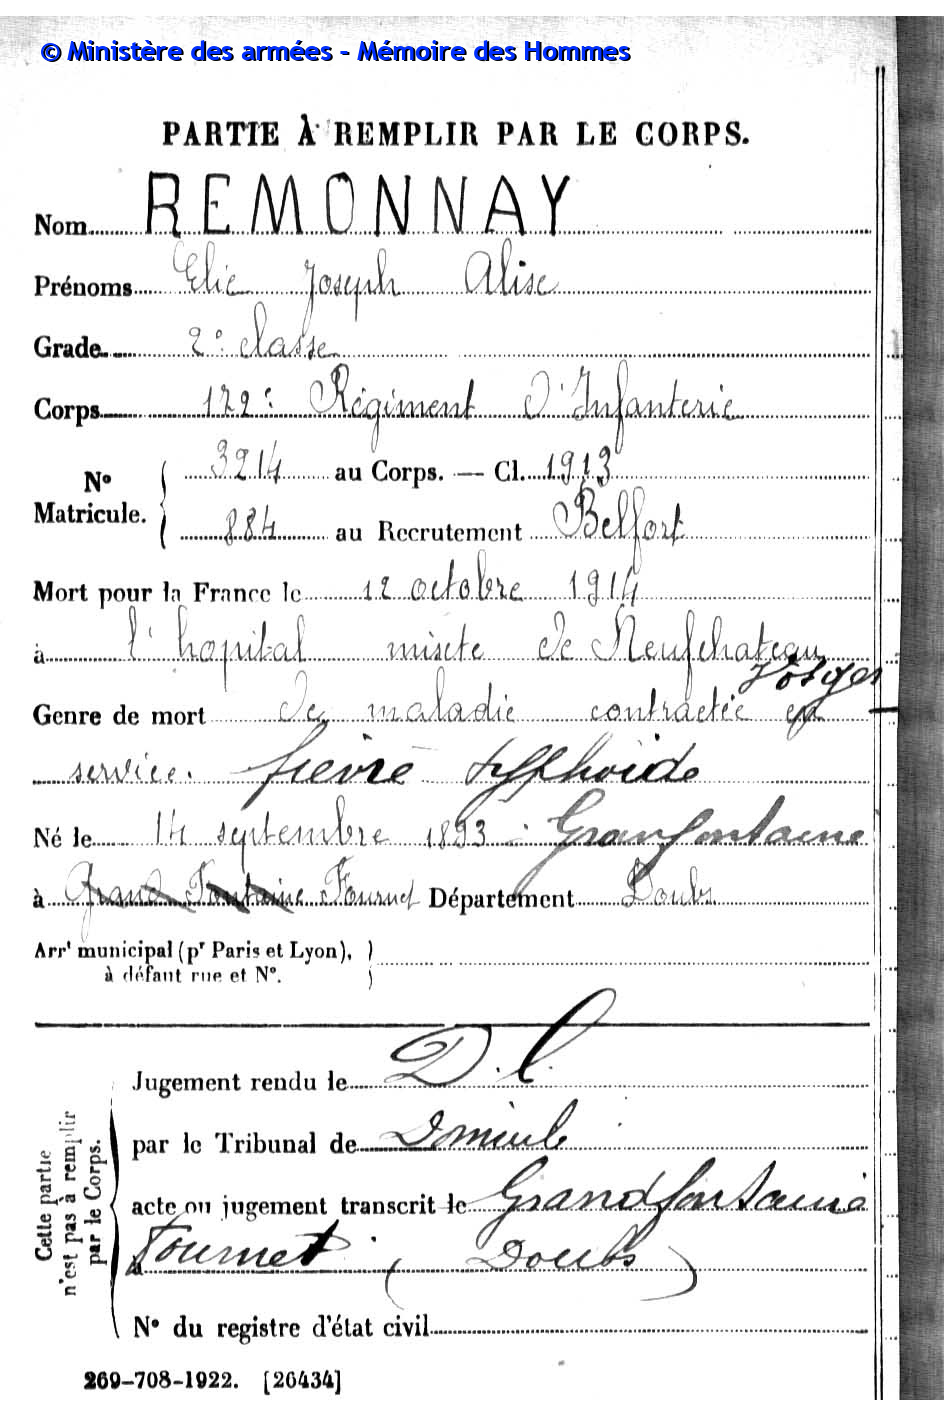 © Ministère des armées - Mémoire des Hommes
PARTIE À REMPLIR PAR LE CORPS.
Nom REMONNAY
Prénoms Elie Joseph Alise
Grade 2e classe
Corps 172e Régiment d'Infanterie
No Matricule. 3214 au Corps. — Cl. 1913
884 au Recrutement Belfort
Mort pour la France le 12 octobre 1914
à l'hopital mixte de Neufchateau
Vosges
Genre de mort De maladie contractée en
service. fièvre typhoïde
Né le 14 septembre 1893 Granfontaine
à Grand Fontaine Fournet Département Doubs
Arrt municipal (pr Paris et Lyon),
à défaut rue et No.
Cette partie n'est pas à remplir par le Corps.
Jugement rendu le D. C.
par le Tribunal de Domicile
acte ou jugement transcrit le Grandfontaine
à Fournet (Doubs)
No du registre d'état civil
269-708-1922. [26434]